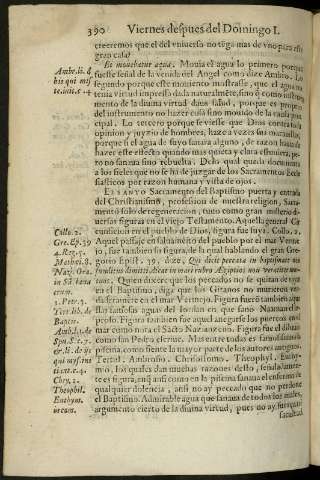 390 Viernes despues del Domingo I.
creeremos que el del vniuerso no tēga mas de vno para este
gran casa?
Et mouebatur aqua. Mouia el agua lo primero porque
fuesse señal de la venida del Angel como dize Ambro. Lo
segundo porque este momento mostrasse, que el agua no
tenia virtud impressa dada naturalmēte, sino q̄ como instrumento
mento de la diuina virtud daua salud, porque es proprio
del instrumento no hazer cosa sino mouido de la causa principal
cipal. Lo tercero porque se viesse que Dios contra toda
opinion y juyzio de hombres, haze a vezes sus marauillas,
porque si el agua de suyo sanara alguno, de razon
hazer este efecto quando mas quieta y clara estuuiera, pero
ro no sanaua sino rebuelta. De lo qual queda documento
a los fieles que no se ha de juzgar de los Sacramentos Ecclesiasticos
siasticos por razon humana y vista de ojos.
EL SANTO Sacramento del Baptismo puerta y entrada
del Christianismo, profession de nuestra religion, Sacramento
mento solo de regeneracion, tuuo como gran misterio diuersas
uersas figuras en el viejo Testamento. Aquella general Circuncision
cuncision en el pueblo de Dios, figura fue suya.
Aquel passaje en saluamento del pueblo por el mar Vermejo,
jo, fue assimismo figura, de la qual hablando el gran Gregorio
gorio Epist. 39, dize, Qui dicit peccata in baptismate non
funditus dimitti, dicat in mari rubro Ægyptios non veraciter mortuos.
tuos. Quien dixere que los pecados no se quitan de rayz
en el Baptismo, diga que los Gitanos no murieron verdaderamente
daderamente en el mar Vermejo. Figura fuerō tambien aquellas
llas famosas aguas del Iordan en que sano Naaman
proso. Figura tambien fue aquel anegarse los puercos en el
mar como nota el Sacto Nazianzeno. Figura fue el diluuio
como san Pedro escriue. Mas entre todas es famosissima
piscina, como siente la mayor parte de los autores antiguos,
Tertul. Ambrosio. Chrisostomo. Theophyl. Euthymio,
mio, los quales dan muchas razones desto, señaladamente
te es figura, mas q̄ ansi como en la piscina sanaua el enfermo de
qualquier dolencia, ansi no ay peccado que no perdone
el Baptismo. Admirable agua que sanaua de todos los males,
argumento cierto de la diuina virtud, pues no ay
facultad
Ambr. li. de
his qui myst.
te. ini. c. 4
Collo. 2.
Gre. Ep. 39
4. Reg. 5.
Mathei. 8.
Naz. Ora.
in Sā. lauacrum.
1. Petr. 3.
Tert. lib. de
Baptis.
Amb. l. 1. de
Spu. S. c. 7.
& li. de ijs
qui myst. init.
ti. ext. c. 4.
Chry. 2.
Theophil.
Euthym.
in eum.